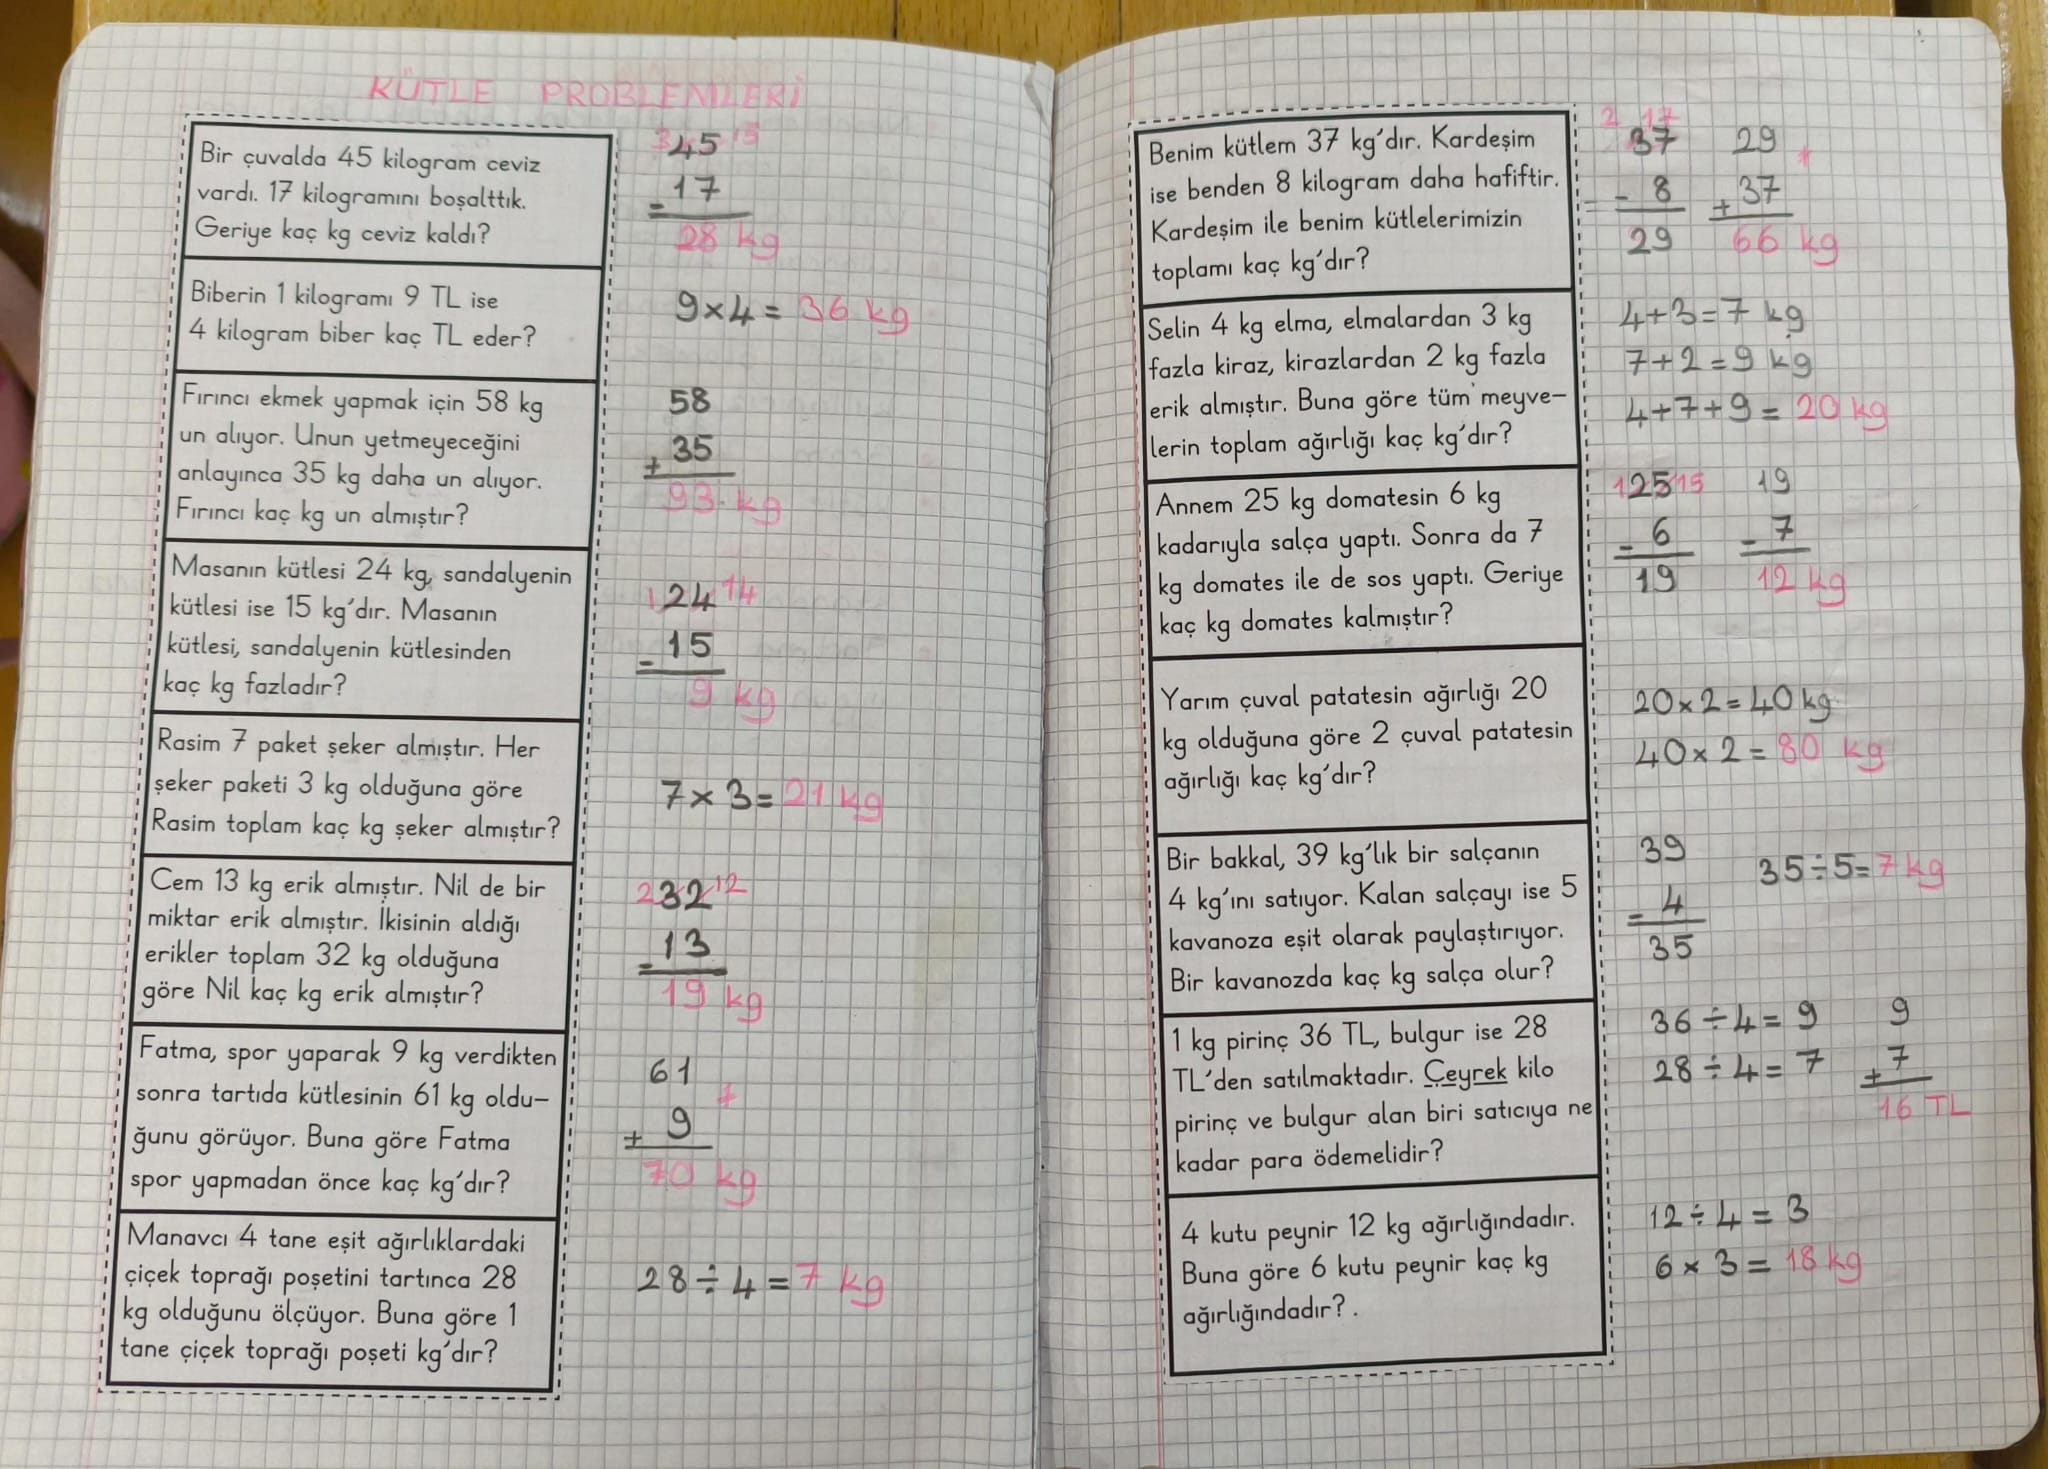 KÜTLE PROBLEMLERİ
Bir çuvalda 45 kilogram ceviz
vardı. 17 kilogramını boşalttık.
Geriye kaç kg ceviz kaldı?
3 45 15
- 17
28 kg
Biberin 1 kilogramı 9 TL ise
4 kilogram biber kaç TL eder?
9×4= 36 kg
Fırıncı ekmek yapmak için 58 kg
un alıyor. Unun yetmeyeceğini
anlayınca 35 kg daha un alıyor.
Fırıncı kaç kg un almıştır?
58
+ 35
93 kg
Masanın kütlesi 24 kg, sandalyenin
kütlesi ise 15 kg'dır. Masanın
kütlesi, sandalyenin kütlesinden
kaç kg fazladır?
1 24 14
- 15
9 kg
Rasim 7 paket şeker almıştır. Her
şeker paketi 3 kg olduğuna göre
Rasim toplam kaç kg şeker almıştır?
7×3= 21 kg
Cem 13 kg erik almıştır. Nil de bir
miktar erik almıştır. İkisinin aldığı
erikler toplam 32 kg olduğuna
göre Nil kaç kg erik almıştır?
2 32 12
- 13
19 kg
Fatma, spor yaparak 9 kg verdikten
sonra tartıda kütlesinin 61 kg oldu-
ğunu görüyor. Buna göre Fatma
spor yapmadan önce kaç kg'dır?
61
+ 9
70 kg
Manavcı 4 tane eşit ağırlıklardaki
çiçek toprağı poşetini tartınca 28
kg olduğunu ölçüyor. Buna göre 1
tane çiçek toprağı poşeti kg'dır?
28÷4=7 kg
Benim kütlem 37 kg'dır. Kardeşim
ise benden 8 kilogram daha hafiftir.
Kardeşim ile benim kütlelerimizin
toplamı kaç kg'dır?
2 17
37 29
- 8 + 37
29 66 kg
Selin 4 kg elma, elmalardan 3 kg
fazla kiraz, kirazlardan 2 kg fazla
erik almıştır. Buna göre tüm meyve-
lerin toplam ağırlığı kaç kg'dır?
4+3=7 kg
7+2=9 kg
4+7+9= 20 kg
Annem 25 kg domatesin 6 kg
kadarıyla salça yaptı. Sonra da 7
kg domates ile de sos yaptı. Geriye
kaç kg domates kalmıştır?
1 25 15 19
- 6 - 7
19 12 kg
Yarım çuval patatesin ağırlığı 20
kg olduğuna göre 2 çuval patatesin
ağırlığı kaç kg'dır?
20×2=40 kg
40×2= 80 kg
Bir bakkal, 39 kg'lık bir salçanın
4 kg'ını satıyor. Kalan salçayı ise 5
kavanoza eşit olarak paylaştırıyor.
Bir kavanozda kaç kg salça olur?
39 35÷5=7 kg
- 4
35
1 kg pirinç 36 TL, bulgur ise 28
TL'den satılmaktadır. Çeyrek kilo
pirinç ve bulgur alan biri satıcıya ne
kadar para ödemelidir?
36÷4= 9 9
28÷4= 7 + 7
16 TL
4 kutu peynir 12 kg ağırlığındadır.
Buna göre 6 kutu peynir kaç kg
ağırlığındadır? .
12÷4= 3
6×3= 18 kg